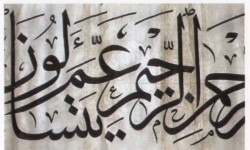 رحمن الرحيم عم يتسالون